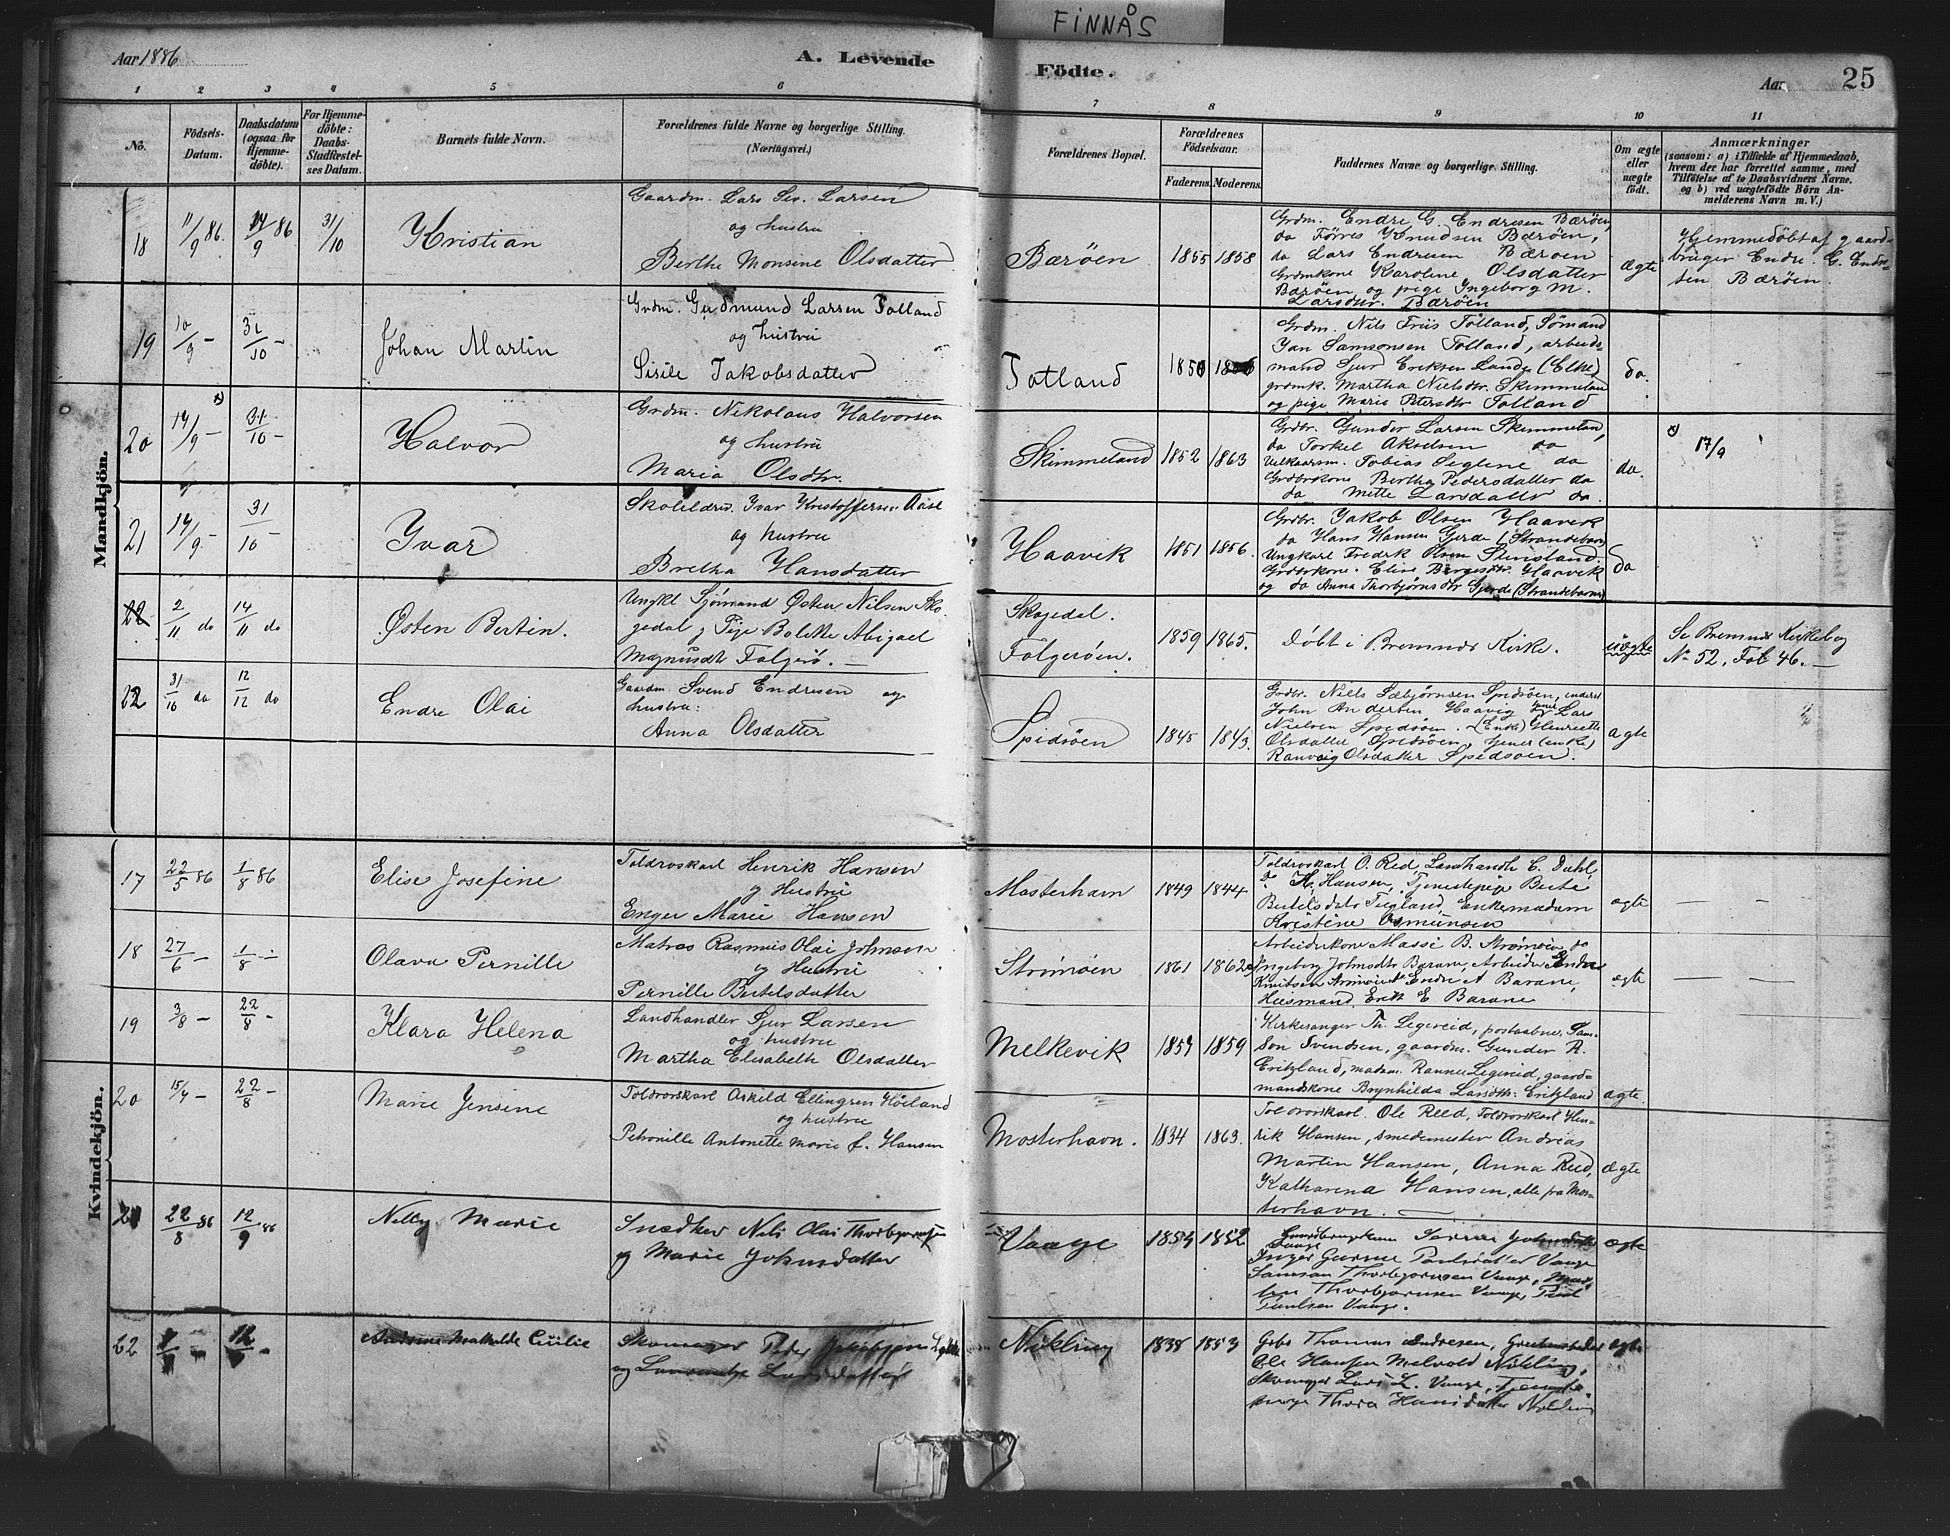 FINNÅS
Aar 1886
A. Levende
Födte.
Aar
25
1
2
3
4
5
6
7
8
9
10
11
No.
Födsels-
Datum.
Daabsdatum
(ogsaa for
Hjemme-
döbte).
For Hjemme-
döbte:
Daabs-
Stadfæstel-
ses Datum.
Barnets fulde Navn.
Forældrenes fulde Navne og borgerlige Stilling.
(Næringsvei.)
Forældrenes Bopæl.
Forældrenes
Födselsaar.
Faderens.
Moderens.
Faddernes Navne og borgerlige Stilling.
Om ægte
eller
uægte
födt.
Anmærkninger
(saasom: a) i Tilfælde af Hjemmedaab,
hvem der har forrettet samme, med
Tilföielse af to Daabsvidners Navne.
og b) ved uægtefödte Börn An-
melderens Navn m. V.)
Mandkjön.
18
11/9 86.
14/9 86
31/10
Kristian
Gaardm. Lars Sev. Larsen
og hustru
Berthe Monsine Olsdatter.
Bærøen
1855
1858
Grdm. Endre G. Endresen Bærøen,
do Tørres Knudsen Bærøen,
do Lars Endresen Bærøen
Grdmkone Karoline Olsdatter
Bærøen og pige Ingeborg M.
Larsdtr. Bærøen
ægte
Hjemmedøbt af gaard-
bruger Endre G. Endre-
sen Bærøen.
19
10/9 -
31/10 -
Johan Martin
Grdm. Gudmund Larsen Totland
og hustru
Sisile Jakobsdatter
Totland
1850
Grdm. Nils Friis Totland, Sømand
Jan Samsonsen Totland, arbeids-
mand Sjur Eriksen Lande (Elne)
grdmk. Martha Nielsdtr. Skimmeland
og pige Maria Petersdtr Totland
do.
20
14/9 -
31/10 -
Halvor
Grdm. Nikolaus Halvorsen
og hustru
Maria Olsdtr.
Skimmeland
1852
1863
Grdbr. Gunder Larsen Skimmeland,
do Torkel Akselsen do
Velkaarsm. Tobias Seglene do
Grdbrkone Bertha Pedersdatter do
do Mette Larsdatter do.
do.
17/9
21
14/9 -
31/10 -
Ivar
Skolelærer. Ivar Kristoffersen Aase
og hustru
Bretha Hansdatter
Haavik
1851
1856.
Grdbr. Jakob Olsen Haavik
do Hans Hansen Gjerde (Strandebarm)
Ungkarl Fredrik Olsen Stensland.
Grdbrkone. Elise Børgesdtr. Haavik
og do Anna Thorbjørnsdtr Gjerde (Strandebarm)
do
22
2/11 do
14/11 do
Østen Bertin.
Ungkl Sjømand Østen Nilsen Sko-
gedal, Pige Bolette Abigael
Magnusdt Folgerø. —
Skogedal.
Folgerøen.
1859
1865.
Døbt i Bremnes Kirke.
uægte
Se Bremnes Kirkebog
No 52. Fol 46. —
22
31/10 do
12/12 do
Endre Olai
Gaardm. Svend Endresen og
hustru:
Anna Olsdatter
Spidsøen
1845
1843.
Grdbr. Niels Sæbjørnsen Spidsøen,
John Andersen Haavig Lars
Nielsen Spidsøen. (Enke) Henriette
Olsdatter Spidsøen, (enke)
Ranveig Olsdatter Spidsøen.
ægte
Kvindekjön.
17
22/5 86
1/8 86
Elise Josefine
Toldroskarl Henrik Hansen
og Hustru
Enger Marie Hansen
Mosterhavn
1849
1844
Toldroskarl O. Red Landhandle E. Dahl,
do H. Hansen, Tjenestepige Berte
Bertelsdatr Tveland Enkemadam
Kristine Osmunsen
ægte
— —
18
27/6 -
1/8 -
Olava Pernille
Matros Rasmus Olai Johnsen
og Hustru
Pernille Bertelsdatter
Strømøen
1861
1862
Arbeiderkone Massi B. Strømøen, do
Ingeborg Johnsdtr Barane, Arbeider Endre
Knutsen Strømøen Endre A Barane,
Husmand Erik E Barane
ægte
— —
19
3/8 -
22/8 -
Klara Helena
Landhandler Sjur Larsen
og hustru
Martha Elisabeth Olsdatter
Melkevik
1859
1859
Kirkesanger Th. Legereid, postaabner Sam-
son Svendsen, gaardm. Gunder R.
Eritzland, madam Rannei Legereid, gaard-
mandskone Brynhilda Larsdtr. Eritzland
ægte.
20
15/7 -
22/8 -
Marie Jensine
Toldroerskarl Askild Ellingsen Høiland
og hustru
Petronille Antonette Marie f. Hansen
Mosterhavn.
1834
1863.
Toldroerskarl. Ole Reed, Toldroerskarl Hen-
rik Hansen, smedemester Andreas
Martin Hansen, Anna Reed,
Katharena Hansen, alle fra Mos-
terhavn. —
ægte
21
22/8 86
12/9 86
Nelly Marie
Snedker Nils Olai Thorbjørnsen
og Marie Johnsdatter
Vaage
1854
1852
Gaardbrugerkone
Vaage
Inger Gurine Poulsdatter Vaage
Samson Thorbjørnsen Vaage, Mar-
tin Thorbjørnsen Vaage, Poul
Poulsen Vaage.
ægte
22
12
Mathilde Cecilie
Skomager Peder
og Larsdatter
Nökling
1838
1853
Thomas Andresen,
Ole Hansen Melvold Nökling,
Skomager Lars L. Vaage, Tjeneste-
pige Thora Hansdatter Nökling
ægte